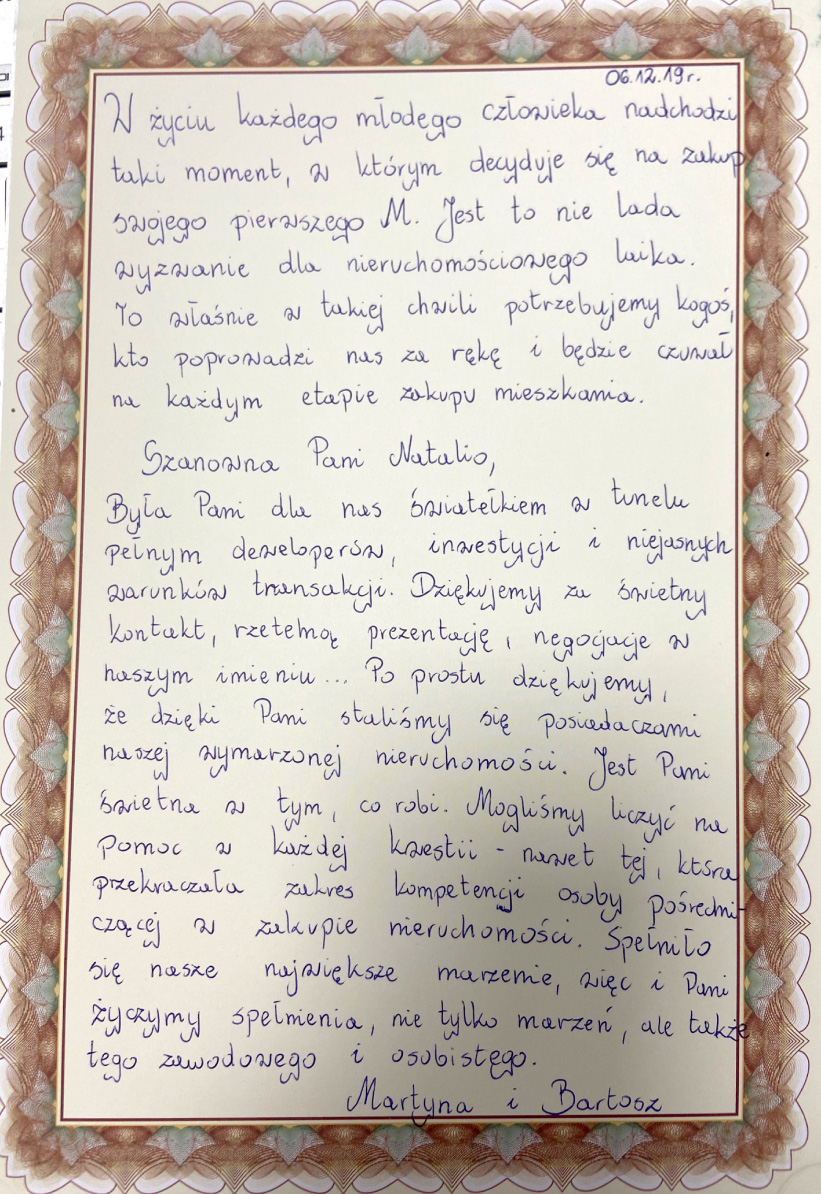 06.12.19r.
W życiu każdego młodego człowieka nadchodzi
taki moment, w którym decyduje się na zakup
swojego pierwszego M. Jest to nie lada
wyzwanie dla nieruchomościowego laika.
To właśnie w takiej chwili potrzebujemy kogoś,
kto poprowadzi nas za rękę i będzie czuwał
na każdym etapie zakupu mieszkania.
Szanowna Pani Natalio,
Była Pani dla nas światełkiem w tunelu
pełnym deweloperów, inwestycji i niejasnych
warunków transakcji. Dziękujemy za świetny
kontakt, rzetelną prezentację, negocjacje w
naszym imieniu... Po prostu dziękujemy,
że dzięki Pani staliśmy się posiadaczami
naszej wymarzonej nieruchomości. Jest Pani
świetna w tym, co robi. Mogliśmy liczyć na
pomoc w każdej kwestii - nawet tej, która
przekraczała zakres kompetencji osoby pośredni-
czącej w zakupie nieruchomości. Spełniło
się nasze największe marzenie, więc i Pani
życzymy spełnienia, nie tylko marzeń, ale także
tego zawodowego i osobistego.
Martyna i Bartosz